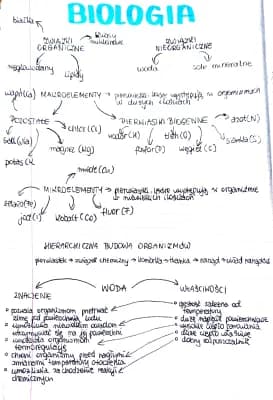 BIOLOGIA
białka
kwasy nukleinowe
ZWIĄZKI ORGANICZNE
ZWIĄZKI NIEORGANICZNE
węglowodany
lipidy
woda
sole mineralne
wapń (Ca)
MAKROELEMENTY → pierwiastki, które występują w organizmach
w dużych ilościach
POZOSTAŁE
chlor (Cl)
PIERWIASTKI BIOGENNE
azot (N)
sód (Na)
magnez (Mg)
wodór (H)
tlen (O)
siarka (S)
potas (K
fosfor (P)
węgiel (C)
miedź (Cu)
MIKROELEMENTY → pierwiastki, które występują w organizmie
w niewielkich ilościach
żelazo (Fe)
jod (I)
kobalt (Co)
fluor (F)
HIERARCHICZNA BUDOWA ORGANIZMÓW
pierwiastek → związek chemiczny → komórka → tkanka → narząd → układ narządów
WODA
ZNACZENIE
WŁAŚCIWOŚCI
• pozwala organizmom przetrwać
zimę pod powierzchnią lodu
• umożliwia niewielkim owadom
utrzymywać się na jej powierzchni
• umożliwia organizmom
termoregulację
• chroni organizmy przed nagłymi
zmianami temperatury otoczenia
• umożliwia zachodzenie reakcji
chemicznych
• gęstość zależna od
temperatury
• duże napięcie powierzchniowe
• wysokie ciepło parowania
• duże ciepło właściwe
• dobry rozpuszczalnik